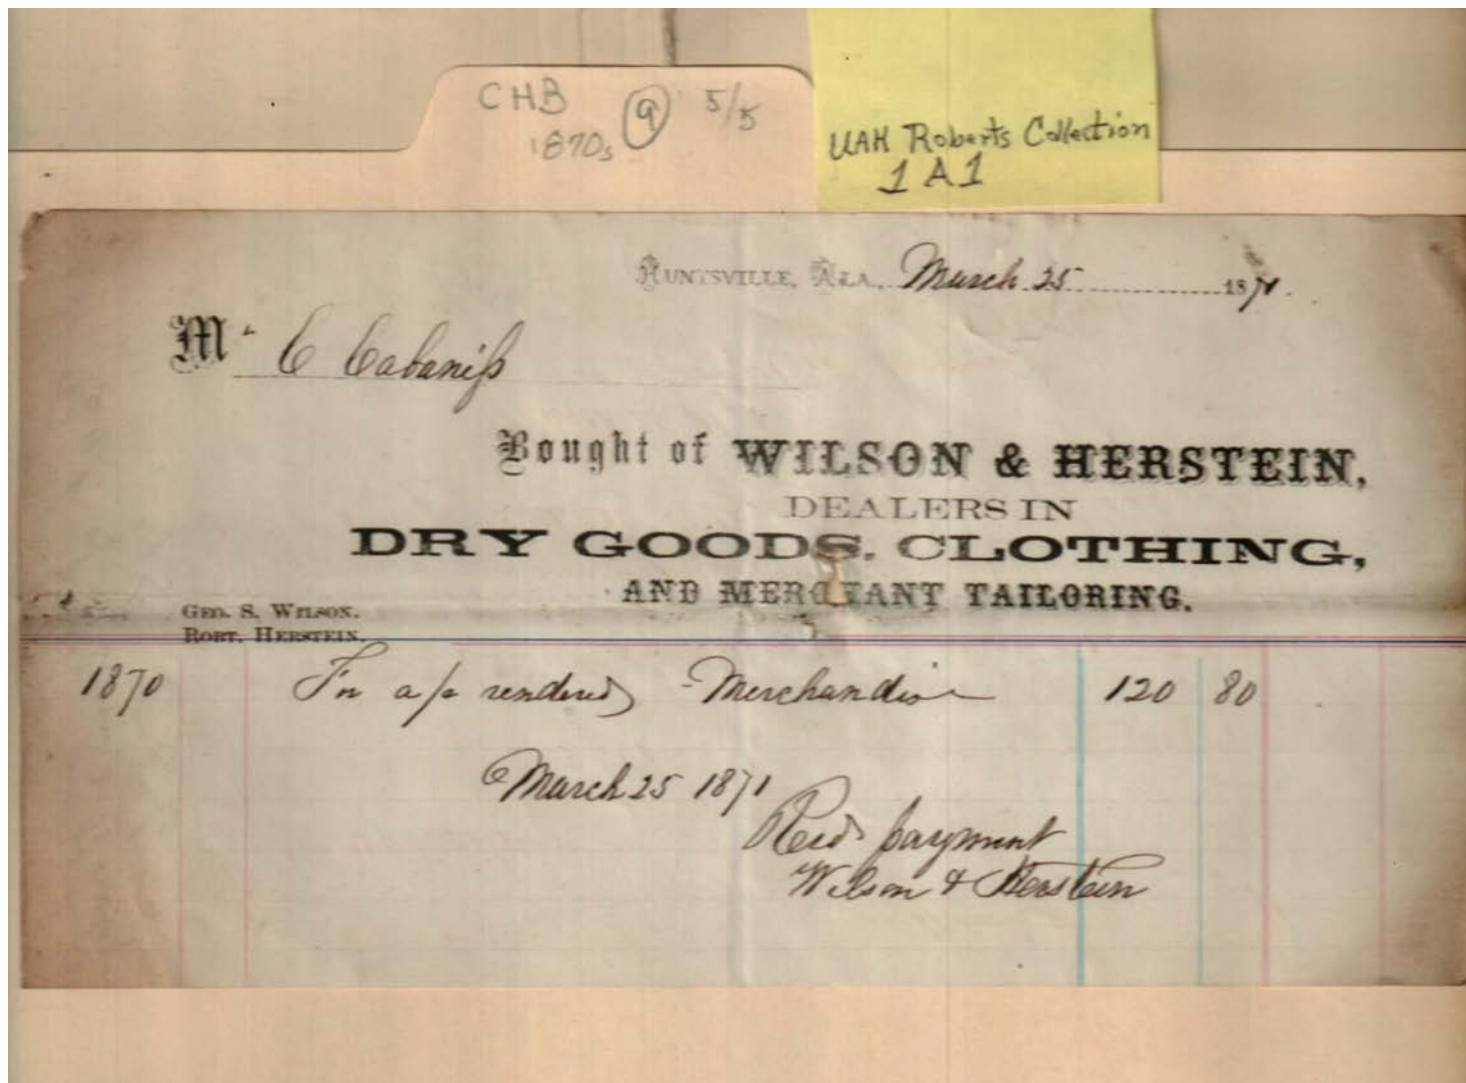 CHB 9 5/5
1870s
UAH Roberts Collection
1 A 1
HUNTSVILLE, ALA., March 25 1871.
Mr C Cabaniss
Bought of WILSON & HERSTEIN,
DEALERS IN
DRY GOODS, CLOTHING,
AND MERCHANT TAILORING.
GEO. S. WILSON.
ROBT. HERSTEIN.
1870 For a/c rendered - Merchandise 120 80
March 25 1871
Recd payment
Wilson & Herstein